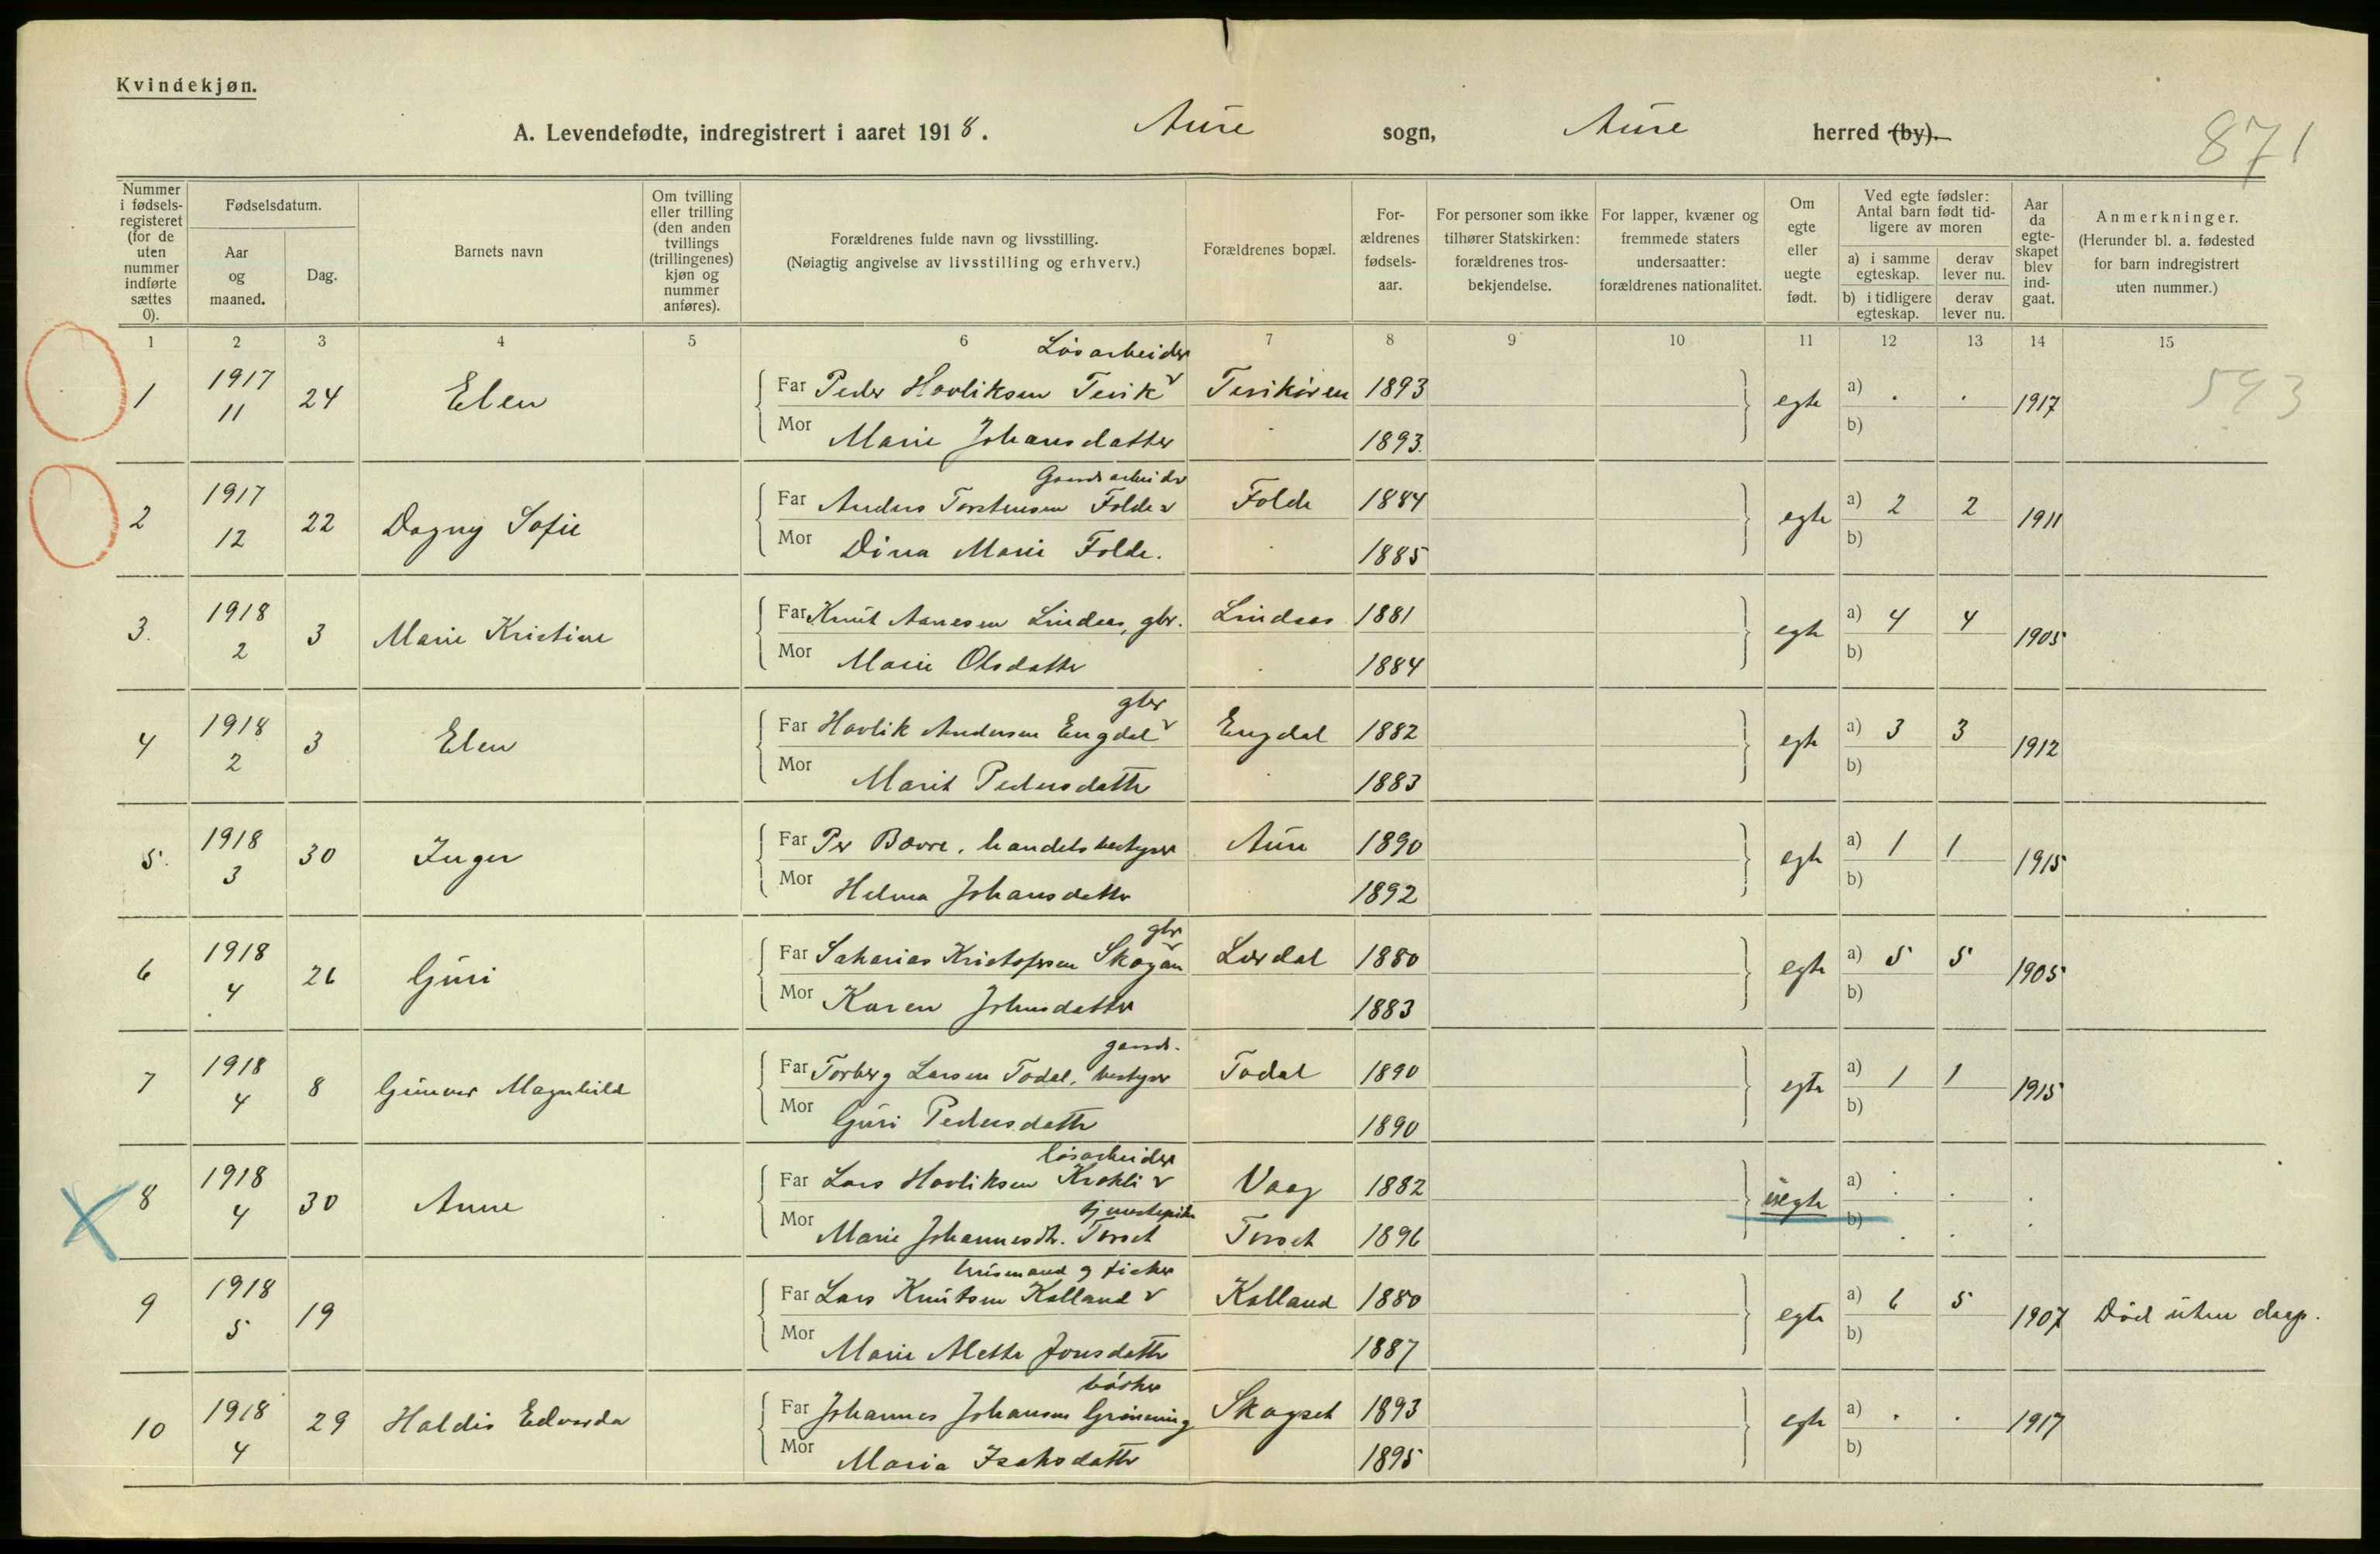 Kvindekjøn.
A. Levendefødte, indregistrert i aaret 1918. Aure sogn, Aure herred (by).
871
Nummer i fødselsregisteret (for de uten nummer indførte sættes 0).
Fødselsdatum.
Aar og maaned.
Dag.
Barnets navn
Om tvilling eller trilling (den anden tvillings (trillingenes) kjøn og nummer anføres).
Forældrenes fulde navn og livsstilling. (Nøiagtig angivelse av livsstilling og erhverv.)
Forældrenes bopæl.
Forældrenes fødselsaar.
For personer som ikke tilhører Statskirken: forældrenes trosbekjendelse.
For lapper, kvæner og fremmede staters undersaatter: forældrenes nationalitet.
Om egte eller uegte født.
Ved egte fødsler: Antal barn født tidligere av moren
a) i samme egteskap. derav lever nu.
b) i tidligere egteskap. derav lever nu.
Aar da egteskapet blev indgaat.
Anmerkninger. (Herunder bl. a. fødested for barn indregistrert uten nummer.)
1 2 3 4 5 6 7 8 9 10 11 12 13 14 15
Løsarbeider
1 1917 11 24 Elen Far Peder Havliksen Tevik Tevikøren 1893 egte a) . . b) 1917 593
Mor Marie Johansdatter 1893.
Gaardsarbeider
2 1917 12 22 Dagny Sofie Far Anders Torstensen Folde Folde 1884 egte a) 2 2 b) 1911
Mor Dina Marie Folde. 1885
3. 1918 2 3 Marie Kristine Far Knut Aanesen Lindaas, gbr. Lindaas 1881 egte a) 4 4 b) 1905
Mor Marie Olsdatter 1884
gbr
4 1918 2 3 Elen Far Havlik Andersen Engdal Engdal 1882 egte a) 3 3 b) 1912
Mor Marit Pedersdatter 1883
5. 1918 3 30 Inger Far Per Bævre, handelsbestyrer Aure 1890 egte a) 1 1 b) 1915
Mor Helma Johansdatter 1892
gbr
6 1918 4 26 Guri Far Saharias Kristofersen Skogan Lerdal 1880 egte a) 5 5 b) 1905
Mor Karen Johnsdatter 1883
gaards-
7 1918 4 8 Gunvor Magnhild Far Torberg Larsen Todal, bestyrer Todal 1890 egte a) 1 1 b) 1915
Mor Guri Pedersdatter 1890
løsarbeider
8 1918 4 30 Anne Far Lars Havliksen Krokli Vaag 1882 uegte a) . . b) . .
tjenestepike
Mor Marie Johannesdtr. Torset Torset 1896
husmand og fisker
9 1918 5 19 Far Lars Knutsen Kalland Kalland 1880 egte a) 6 5 b) 1907 Død uten daap.
Mor Marie Mette Jonsdatter 1887
bøker
10 1918 4 29 Haldis Edvarda Far Johannes Johansen Grønning Skogset 1893 egte a) . . b) 1917
Mor Maria Isaksdatter 1895